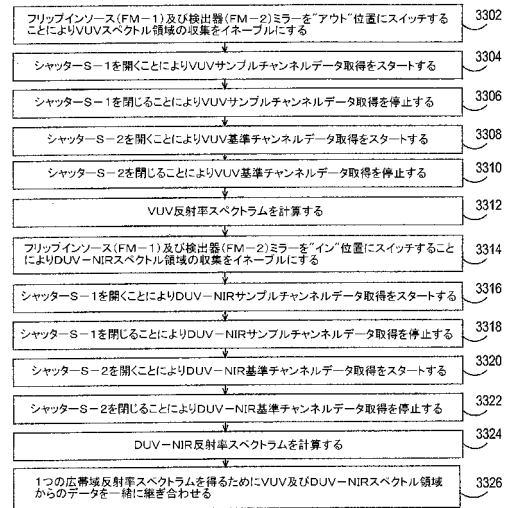 フリップインソース(FM-1)及び検出器(FM-2)ミラーを"アウト"位置にスイッチする
ことによりVUVスペクトル領域の収集をイネーブルにする
3302
シャッターS-1を開くことによりVUVサンプルチャンネルデータ取得をスタートする
3304
シャッターS-1を閉じることによりVUVサンプルチャンネルデータ取得を停止する
3306
シャッターS-2を開くことによりVUV基準チャンネルデータ取得をスタートする
3308
シャッターS-2を閉じることによりVUV基準チャンネルデータ取得を停止する
3310
VUV反射率スペクトラムを計算する
3312
フリップインソース(FM-1)及び検出器(FM-2)ミラーを"イン"位置にスイッチすること
によりDUV-NIRスペクトル領域の収集をイネーブルにする
3314
シャッターS-1を開くことによりDUV-NIRサンプルチャンネルデータ取得をスタートする
3316
シャッターS-1を閉じることによりDUV-NIRサンプルチャンネルデータ取得を停止する
3318
シャッターS-2を開くことによりDUV-NIR基準チャンネルデータ取得をスタートする
3320
シャッターS-2を閉じることによりDUV-NIR基準チャンネルデータ取得を停止する
3322
DUV-NIR反射率スペクトラムを計算する
3324
1つの広帯域反射率スペクトラムを得るためにVUV及びDUV-NIRスペクトル領域
からのデータを一緒に継ぎ合わせる
3326